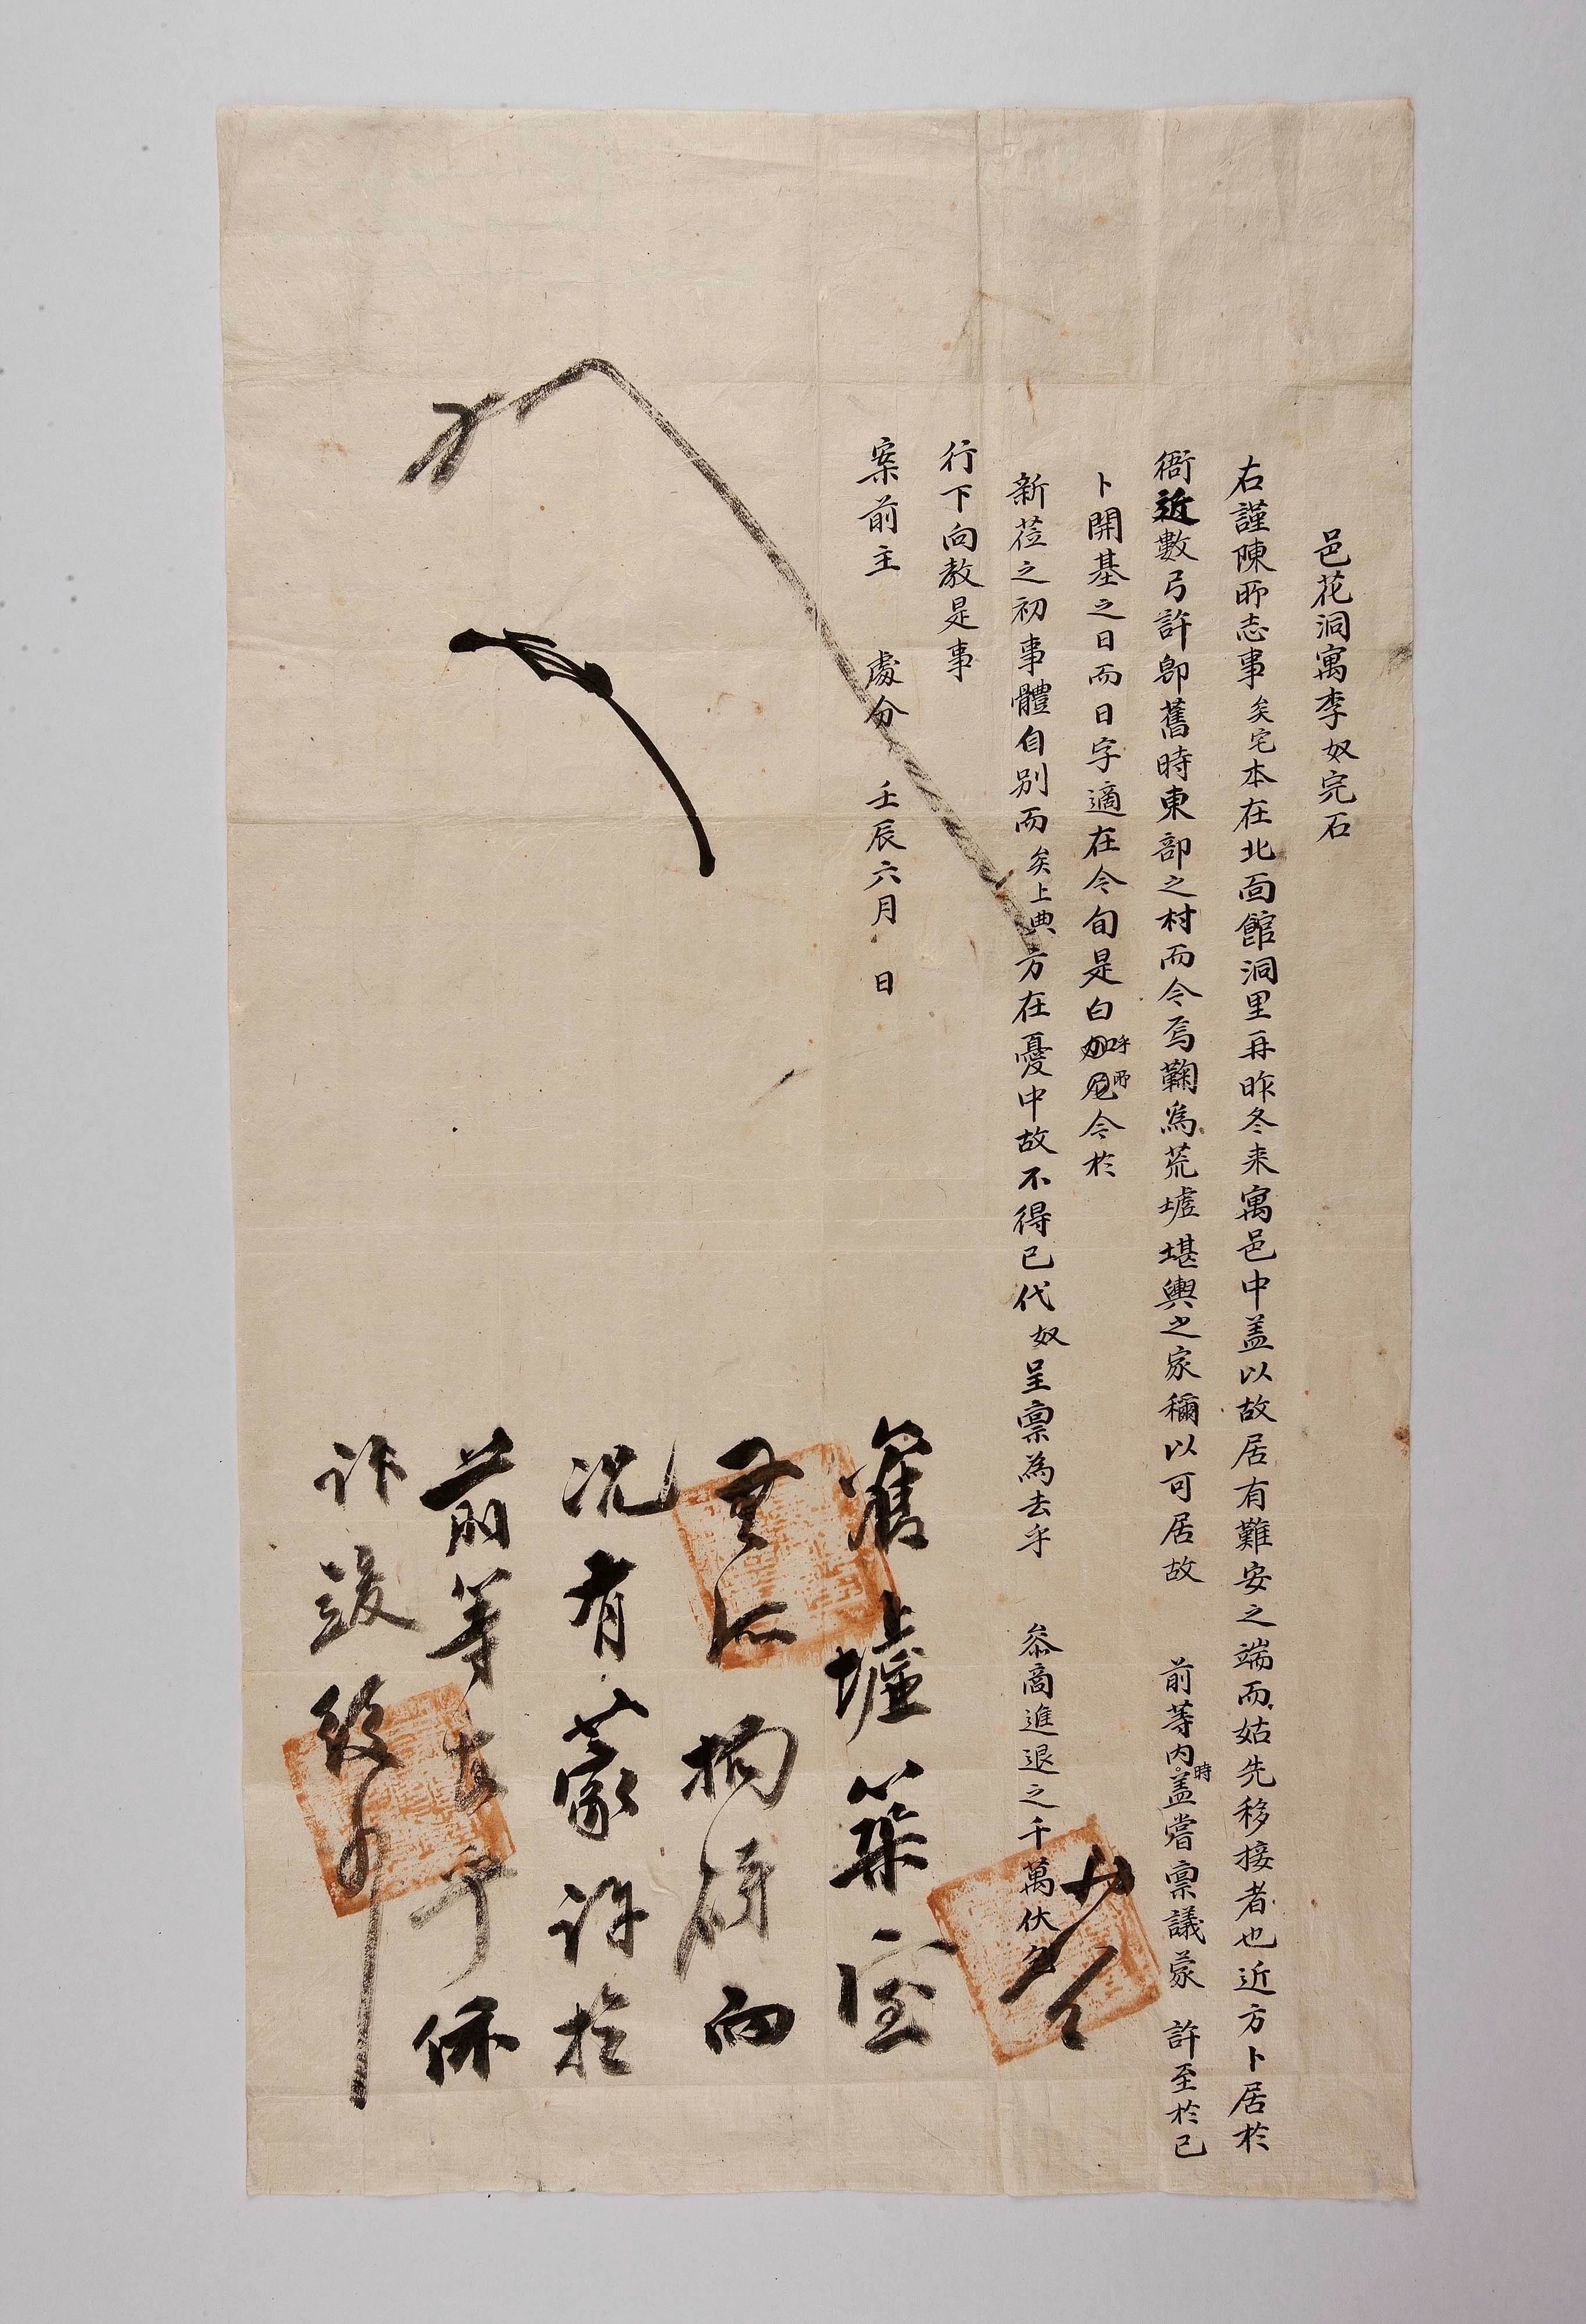 邑花洞寓李奴完石
右謹陳所志事矣宅本在北面館洞里再昨冬来寓邑中盖以故居有難安之端而姑先移接者也近方卜居於
衙近數弓許卽舊時東部之村而今焉鞠爲荒墟堪輿之家稱以可居故 前等內時盖嘗稟議蒙 許至於已
卜開基之日而日字適在今旬是白乎所今於
新莅之初事體自別而矣上典方在憂中故不得已代奴呈稟為去乎 叅商進退之千萬伏
行下向教是事
案前主 處分 壬辰六月 日
廿八
舊墟築室
無所拘碍向
況有蒙許於
前等者乎依
許設